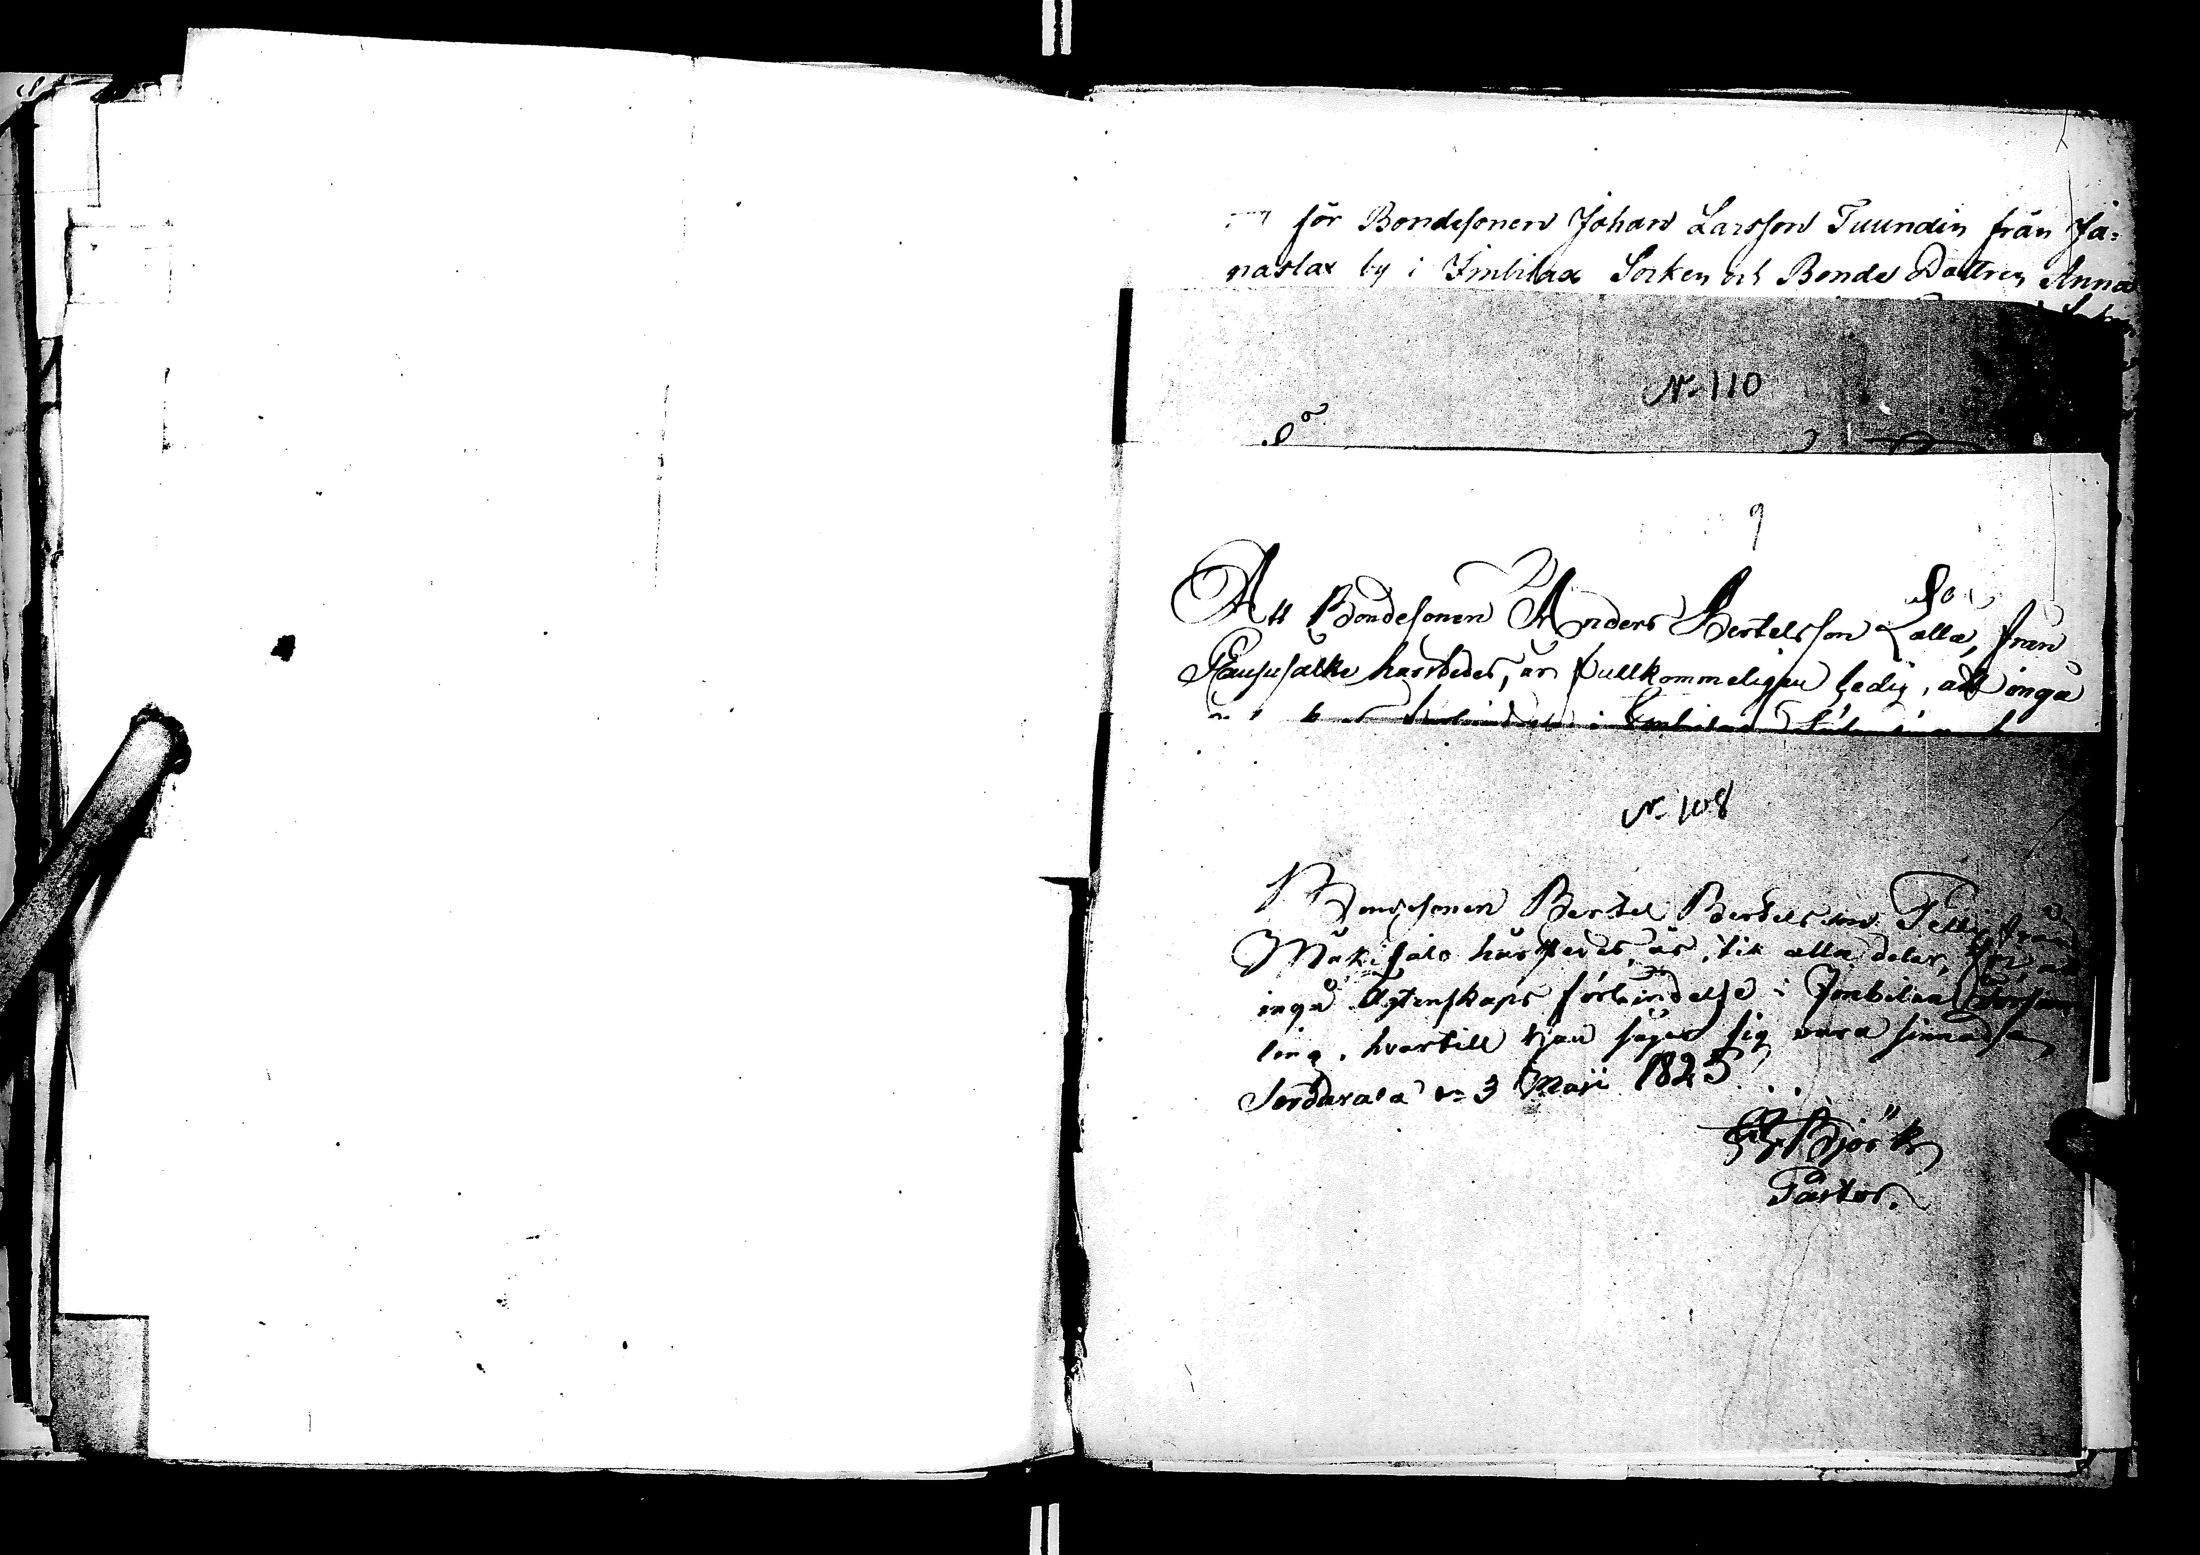 för Bondesonen Johan Larsson Tuundin från Ja=
naslax by i Imbilax Socken och Bonde Dottren Anna
N. 110
Att Bondesonen Anders Bertelsson Lalla, från
härstedes, är fullkommeligen ledig, att ingå
N. 108
Bondesonen Bertel Bertelsson från
Mäkisalo härstedes, är, till alla delar, fri, att
ingå Ägtenskaps förbindelse i Imbilax Försam
ling, hvartill han säger sig vara sinnad;
Sordavala d. 3 Maji 1825.
Björk
Pastor.